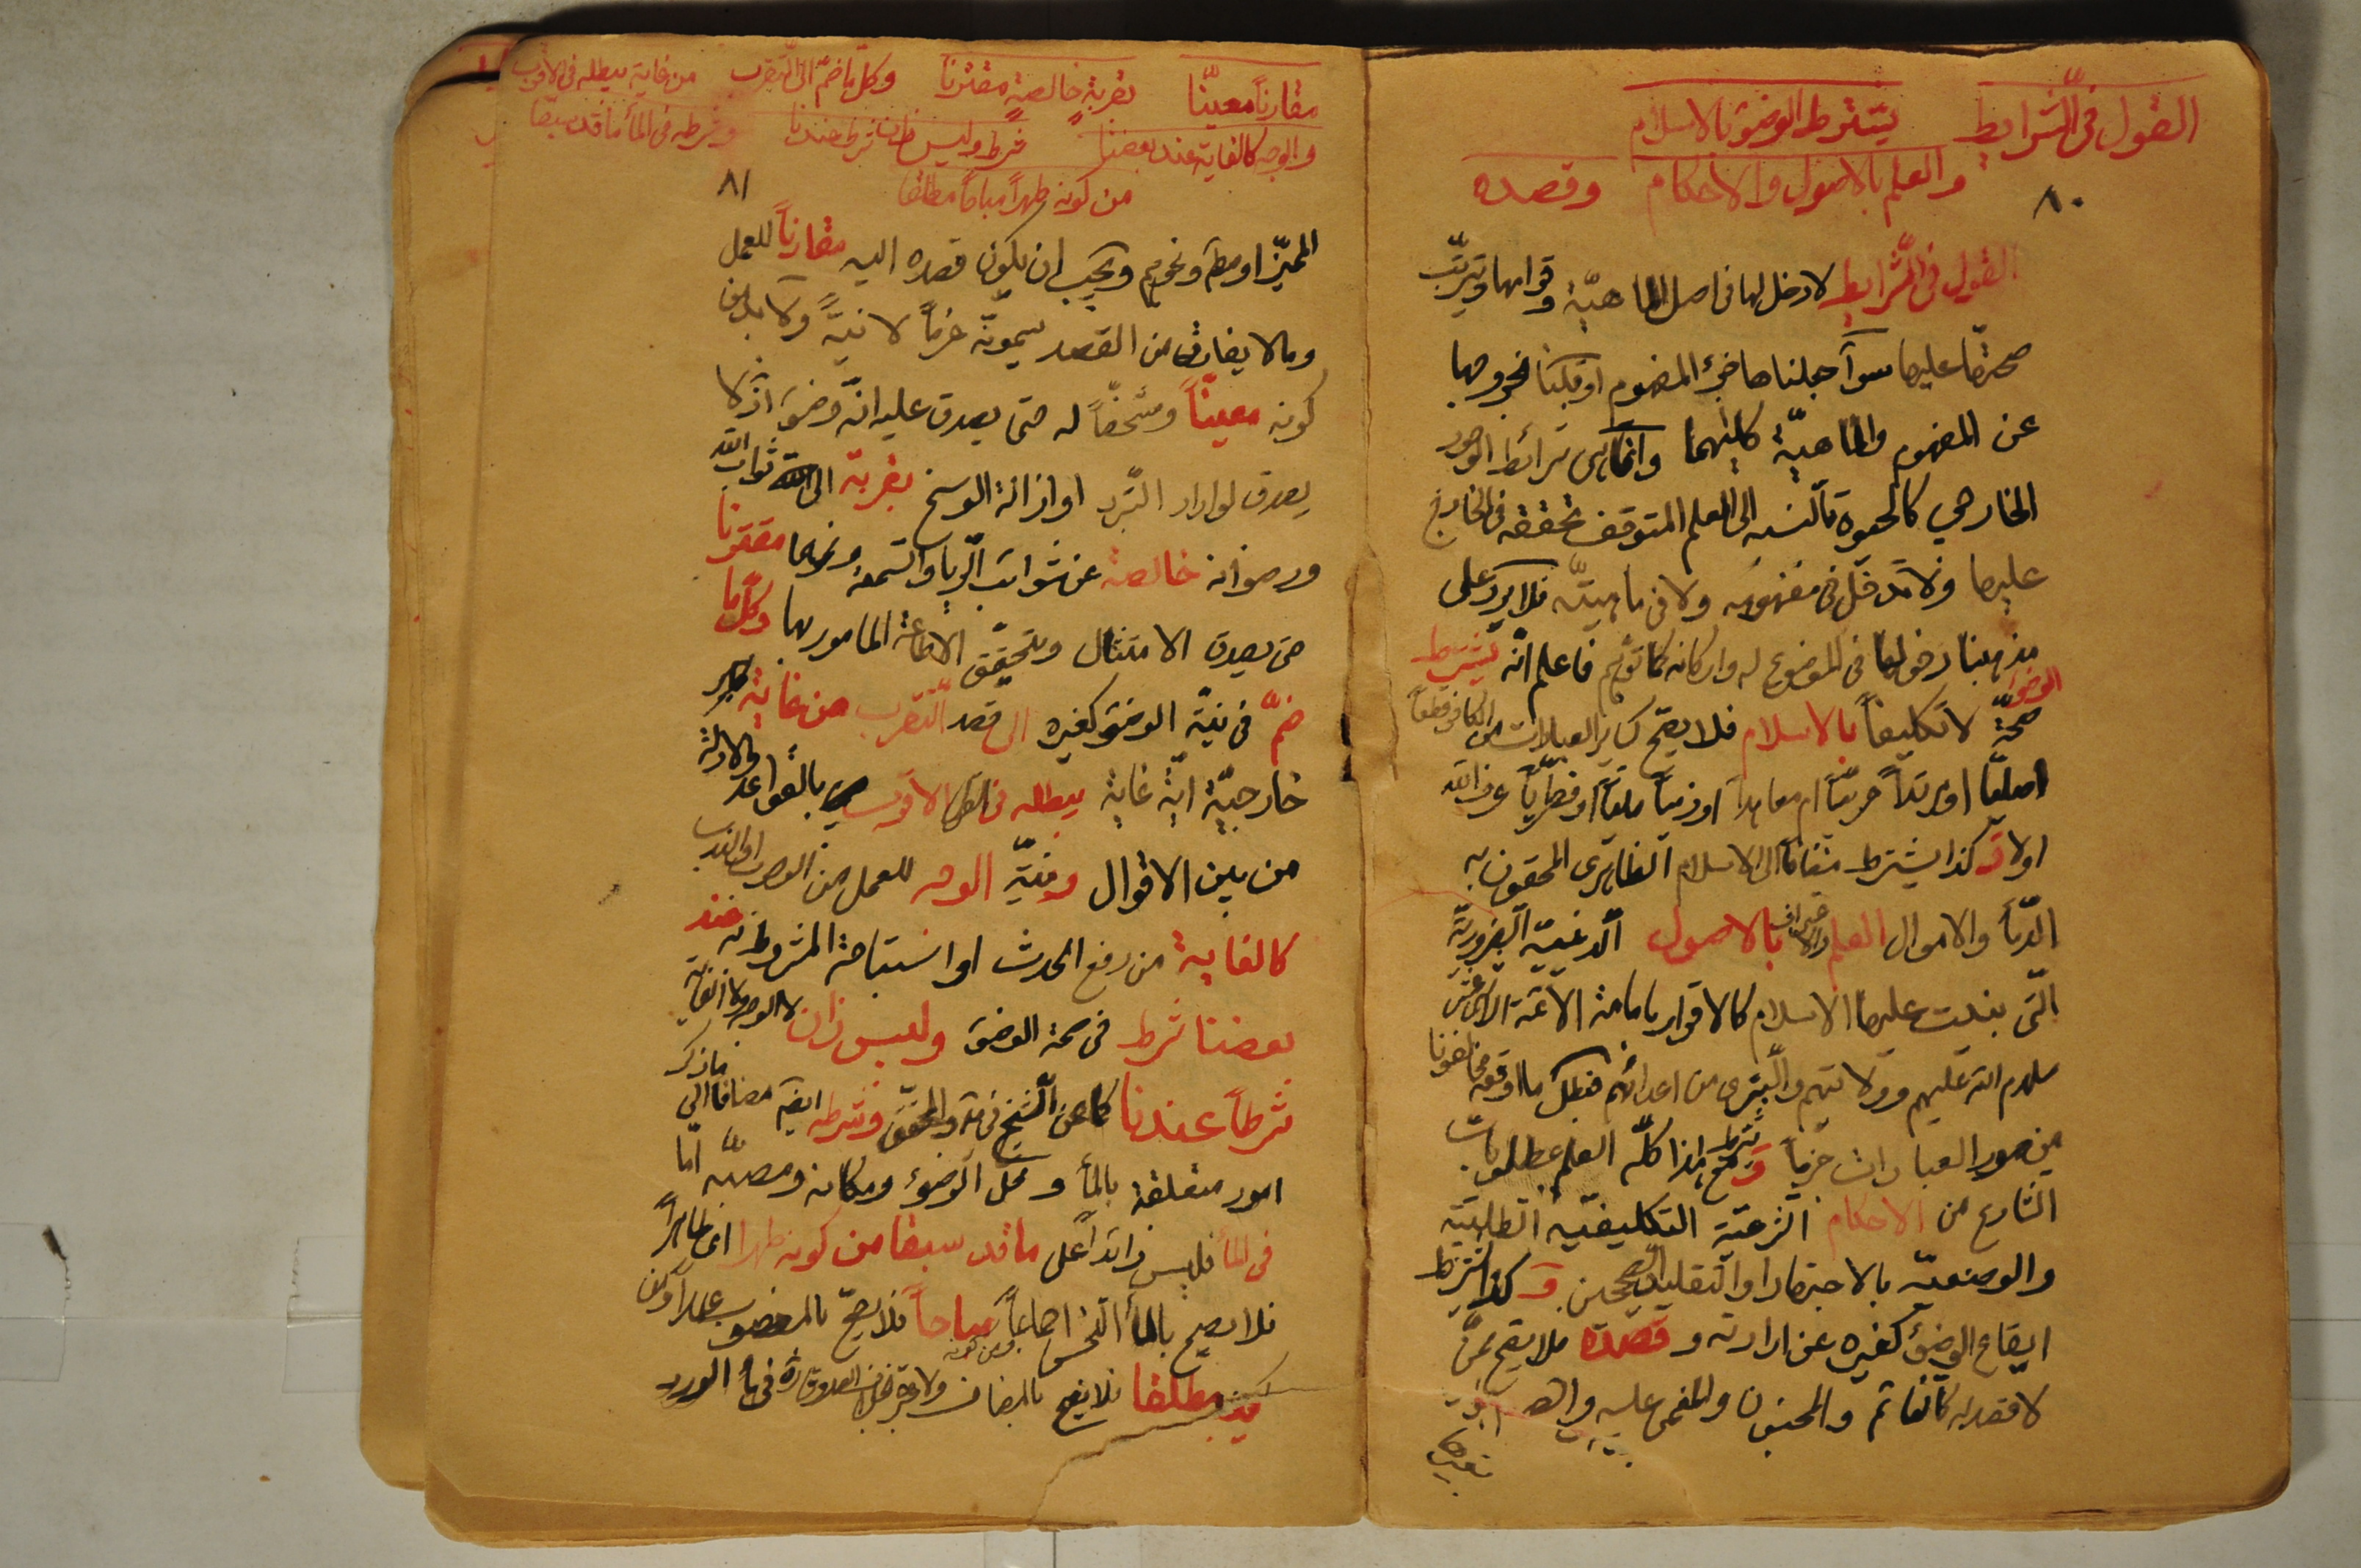 القول في الشرايط يشترط الوضؤ بالاسلام
والعلم بالاصول والاحكام وقصده
٨٠
القول في الشرايط لا دخل لها في اصل الماهيّة وقوامها ويترتّب
صحتها عليها سوآء جعلناها جزء المفهوم او قلنا بخروجها
عن المفهوم والماهيّة كليهما وانما هي شرائط الوجود
الخارجي كالحيوة بالنسبة الى العلم المتوقف تحققه في الخارج
عليها ولا تدخل في مفهومه ولا في ماهيته فلا يرد على
مذهبنا دخولها في الموضوع له واركانه كما توهم فاعلم انّه يشترط
الوضؤ
صحّة لا تكليفاً بالاسلام فلا يصحّ كساير العبادات من الكافر قطعاً
اصليّا او مرتداً حربيّا ام معاهداً او ذميّاً مليّاً او فطريّاً عرف الله
اولا وكذا يشترط مضافاً الى الاسلام الظاهرى المحقون به
الدّمآء والاموال العلم بالاصول الدينيّه الضروريّة
التى بنيت عليها الاسلام كالاقرار بامامة الائمة الاثنى عشر
سلام الله عليهم وولايتهم والتبرى من اعدائهم فبطل ما اوقعه مخالفونا
من صور العبادات جزماً و مع هذا كلّه شرط العلم بمطلوبات
الشارع من الاحكام الشرعيّة التكليفيّه الطلبيّه
والوضعيّه بالاجتهاد او التقليد الصحيحين و كذا يشترط
ايقاع الوضؤ كغيره عن ارادته و قصده فلا يقع ممّن
لا قصد له كالنائم والمجنون والمغمى عليه
مقارناً معيّنا بقربةٍ خالصةٍ مقترنا وكل ما ضمّ الى التّقرب من غاية يبطله في الاقرب
والوجه كالغاية عند بعضنا شرط وليس ذان شرط عندنا وشرطه في المأ ما قد سبقا
من كونه طهراً مباحاً مطلقا
٨١
المميّز او مطلقا ونحوهم ويجب ان يكون قصده اليه مقارناً للعمل
وما لا يقارن من القصد يسمونه عزماً لا نيّةً ولا بد من
كونه معيّناً ومشخصّاً له حتى يصدق عليه انّه وضؤ اذ لا
يصدق لو اراد التّبرد او ازالة الوسخ بقربة الى ثواب الله
ورضوانه خالصة عن شوائب الريا والسّمعة ونحوهما مقترنا
حتى يصدق الامتثال ويتحقّق الاطاعة المامور بها وكلّ ما
ضمّ في نيّة الوضؤ كغيره الى قصد التّقرب من غاية
خارجيّة ايّة غاية يبطله في الاقرب بالقواعد والادلة
من بين الاقوال ونيّة الوجه للعمل من الوجوب او الندب
كالغاية من رفع الحدث او استباحة المشروط به عند
بعضنا شرط في صحة الوضؤ وليس ذان لا الوجه ولا الغاية
شرطاً عندنا كما عن الشيخ في ية والمحقق وشرطه ايضا مضافا الى ما ذكر
امور متعلقة بالمأ و محل الوضوء ومكانه ومصبّه امّا
في المأ فليس زائداً على ما قد سبقا من كونه طهرا اى طاهراً
فلا يصح بالمأ النجس اجماعاً ومن كونه مباحاً فلا يصحّ بالمغصوب عمداً
مطلقا فلا يصح بالمضاف في مآء الورد